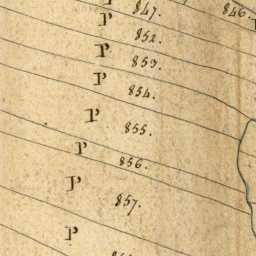 P 847. 846.
P 852.
P 853.
P 854.
P 855.
P 856.
P 857.
P